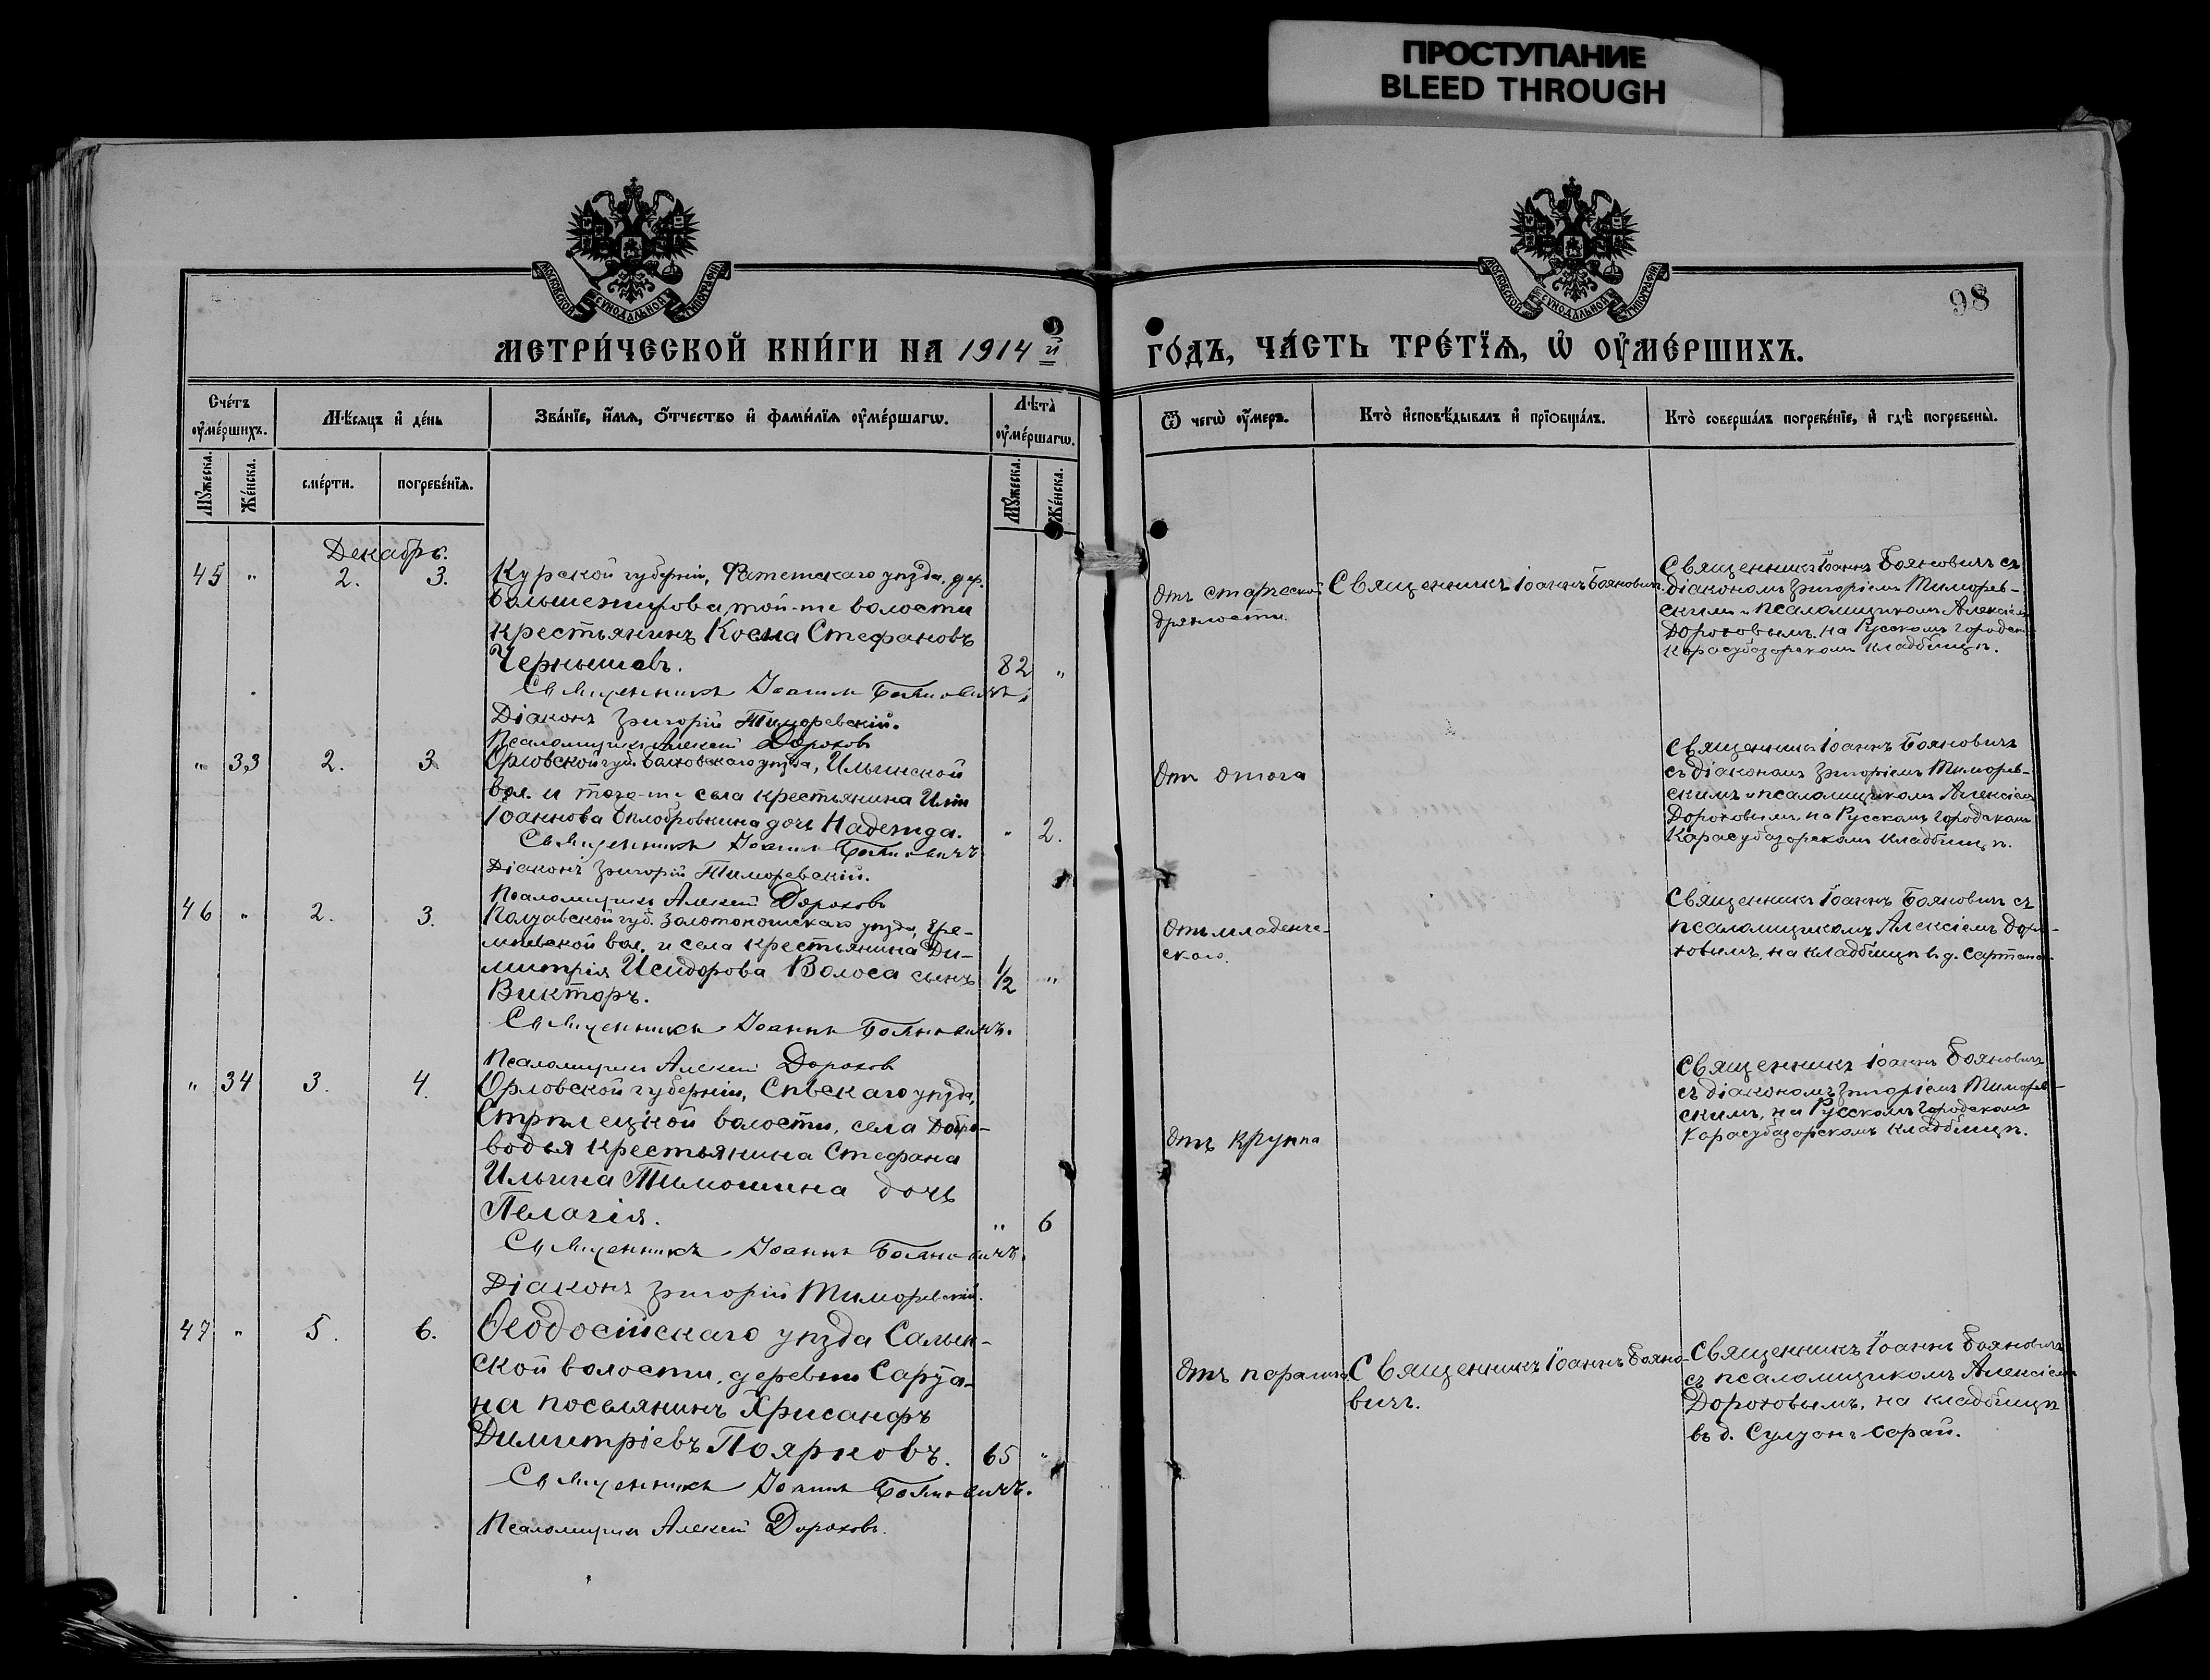 ПРОСТУПАНИЕ
BLEED THROUGH
МОСКОВСКОЙ СѴНОДАЛЬНОЙ ТИПОГРАФІИ
МОСКОВСКОЙ СѴНОДАЛЬНОЙ ТИПОГРАФІИ
98
МЕТРИ́ЧЕСКОЙ КНИ́ГИ НА 1914 й
ГО́ДЪ, ЧА́СТЬ ТРЕ́ТЇѦ, Ѡ҆ ОУ҆МЕ́РШИХЪ.
Сче́тъ оу҆ме́ршихъ.
Мѣ́сѧцъ и҆ де́нь
Зва́нїе, и҆́мѧ, ѻ҆́тчество и҆ фами́лїѧ оу҆ме́ршагѡ.
Лѣ́та оу҆ме́ршагѡ.
Ѿ чегѡ̀ оу҆́меръ.
Кто̀ и҆сповѣ́дывалъ и҆ прїѡбща́лъ.
Кто̀ соверша́лъ погребе́нїе, и҆ гдѣ̀ погребены̀.
Мꙋ́жеска.
Же́нска.
сме́рти.
погребе́нїѧ.
Мꙋ́жеска.
Же́нска.
Декабрь.
45 " 2. 3.
Курской губерніи, Фатежскаго уѣзда, дер.
Большежирова, той-же волости
крестьянинъ Косма Стефановъ
Чернышевъ. 82 "
Священникъ Іоаннъ Бояновичъ.
Діаконъ Григорій Тиморевскій.
Псаломщикъ Алексѣй Дороховъ
Отъ старческой
дряхлости.
Священникъ Іоаннъ Бояновичъ.
Священникъ Іоаннъ Бояновичъ съ
діакономъ Григоріемъ Тиморев-
скимъ и псаломщикомъ Алексіемъ
Дороховымъ, на Русскомъ городском
Карасубазарскомъ кладбищѣ.
" 33 2. 3.
Орловской губ. Болховскаго уѣзда, Ильинской
вол. и того-же села крестьянина Ильи
Іоаннова дочь Надежда. " 2.
Священникъ Іоаннъ Бояновичъ
Діаконъ Григорій Тиморевскій.
Псаломщикъ Алексѣй Дороховъ
Отъ ожога
Священникъ Іоаннъ Бояновичъ
съ діакономъ Григоріемъ Тиморев-
скимъ и псаломщикомъ Алексіемъ
Дороховымъ, на Русскомъ городскомъ
Карасубазарскомъ кладбищѣ.
46 " 2. 3.
Полтавской губ. Золотоношскаго уѣзда,
вол. и села крестьянина Ди-
митрія Исидорова Волоса сынъ 1/2 "
Викторъ.
Священникъ Іоаннъ Бояновичъ.
Псаломщикъ Алексѣй Дороховъ
Отъ младенче-
скаго.
Священникъ Іоаннъ Бояновичъ съ
псаломщикомъ Алексіемъ Доро-
ховымъ, на кладбищѣ в д.
" 34 3. 4.
Орловской губерніи, Сѣвскаго уѣзда,
Стрѣлецкой волости, села Добро-
водья крестьянина Стефана
Ильина Тимошина дочь
Пелагія. " 6
Священникъ Іоаннъ Бояновичъ.
Діаконъ Григорій Тиморевскій.
Отъ крупа
Священникъ Іоаннъ Бояновичъ
съ діакономъ Григоріемъ Тиморев-
скимъ, на Русскомъ городскомъ
Карасубазарскомъ кладбищѣ.
47 " 5. 6.
Ѳеодосійскаго уѣзда Салын-
ской волости, деревни
поселянинъ Хрисанфъ
Димитріевъ Поярковъ. 65 "
Священникъ Іоаннъ Бояновичъ.
Псаломщикъ Алексѣй Дороховъ.
Отъ паралича
Священникъ Іоаннъ Бояно-
вичъ.
Священникъ Іоаннъ Бояновичъ
съ псаломщикомъ Алексіемъ
Дороховымъ, на кладбищѣ
въ д. Султанъ-Сарай.